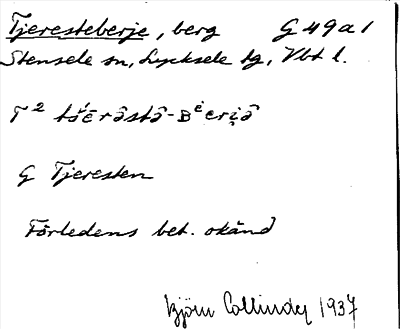 Tjeresteberje, berg G 49 a 1
Stensele sn, Lycksele lg, Vbt l.
G Tjeresten
Förledens bet. okänd
Björn Collinder 1937